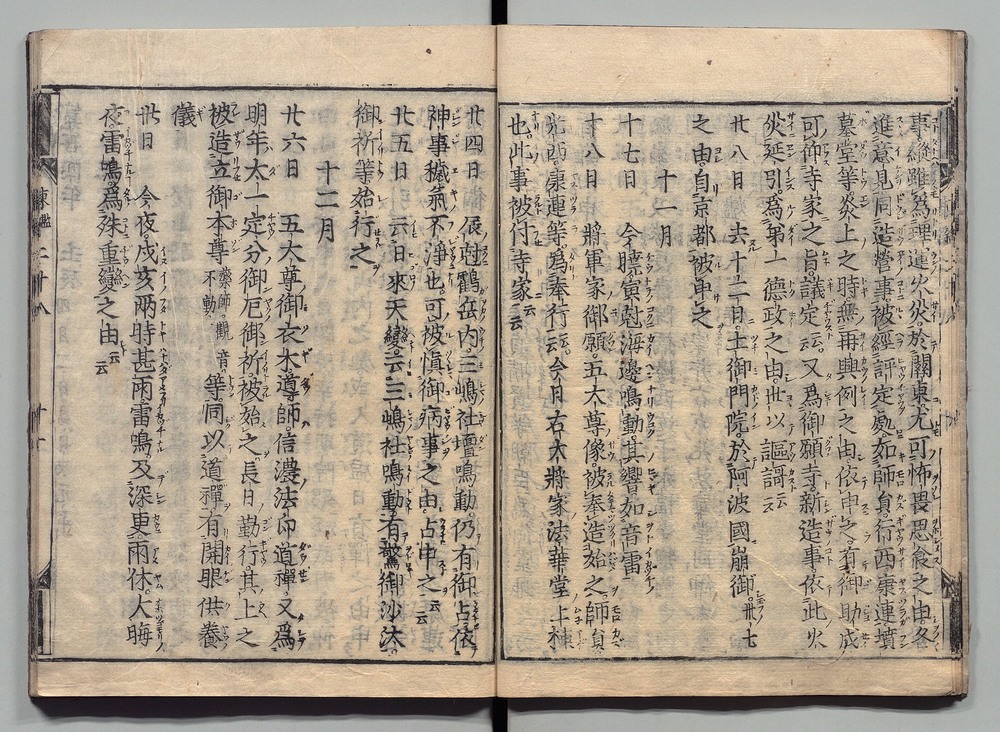 事雖爲理運火災於關東尤可怖畏思食之由各
進意見同造營事被經評定處如師員行西康連墳
墓堂等炎上之時無再興例之由依申之有御助成
可仰寺家之旨議定云又爲御願寺新造事依此火
災延引爲第一德政之由世以謳謌云云
廿八日去十二日土御門院於阿波國崩御卅七
之由自京都被申之
十一月
十七日今曉寅尅海邊鳴動其響如音雷
十八日將軍家御願五大尊像被奉造始之師員
光西康連等爲奉行云云今日右大將家法華堂上棟
也此事被付寺家云云
廿四日辰尅鶴岳内三嶋社壇鳴動仍有御占依
神事穢氣不淨也可被愼御病事之由占申之云云
廿五日云日來天變云三嶋社鳴動有驚御沙汰
御祈等始行之
十二月
廿六日五大尊御衣木導師信濃法印道禪又爲
明年太一定分御厄御祈被始之長日勤行其上之
被造立御本尊藥師觀音不動等同以道禪有開眼供養
儀
卅日今夜戌亥兩時甚雨雷鳴及深更雨休大晦
夜雷鳴爲殊重變之由云云
東鑑二十八